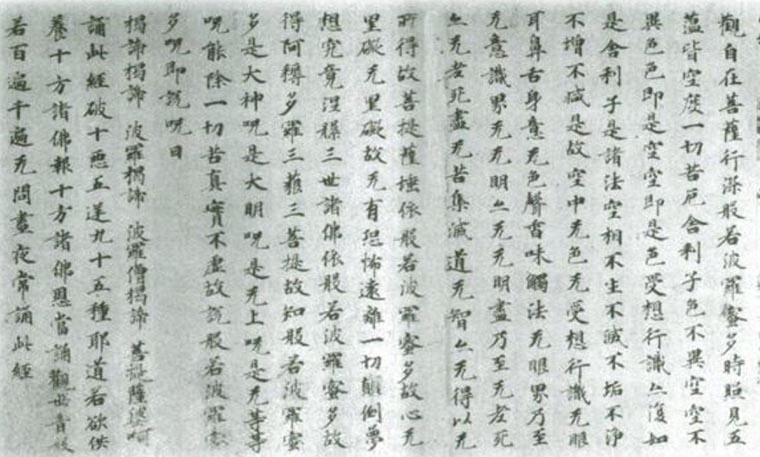 觀自在菩薩行深般若波羅蜜多時照見五
蘊皆空度一切苦厄舍利子色不異空空不
異色色即是空空即是色受想行識亦復如
是舍利子是諸法空相不生不滅不垢不淨
不增不減是故空中无色无受想行識无眼
耳鼻舌身意无色聲香味觸法无眼界乃至
无意識界无无明亦无无明盡乃至无老死
亦无老死盡无苦集滅道无智亦无得以无
所得故菩提薩埵依般若波羅蜜多故心无
罣礙无罣礙故无有恐怖遠離一切顛倒夢
想究竟涅槃三世諸佛依般若波羅蜜多故
得阿耨多羅三藐三菩提故知般若波羅蜜
多是大神呪是大明呪是无上呪是无等等
呪能除一切苦真實不虛故說般若波羅蜜
多呪即說呪曰
揭諦揭諦 波羅揭諦 波羅僧揭諦 菩提薩婆呵
誦此經破十惡五逆九十五種耶道若欲供
養十方諸佛報十方諸佛恩當誦觀世音般
若百遍千遍无問晝夜常誦此經